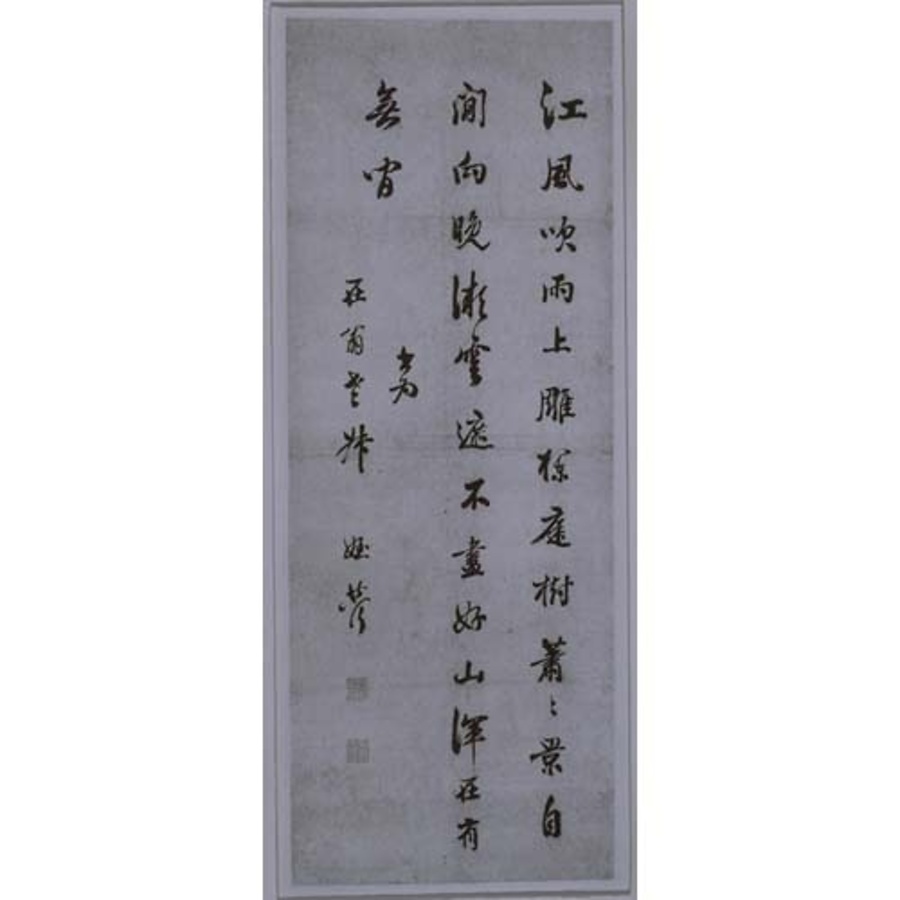 江風吹雨上雕櫳庭樹蕭〻景自
閒向晚漸雲遮不盡好山渾在有
無間
書為
在翁老